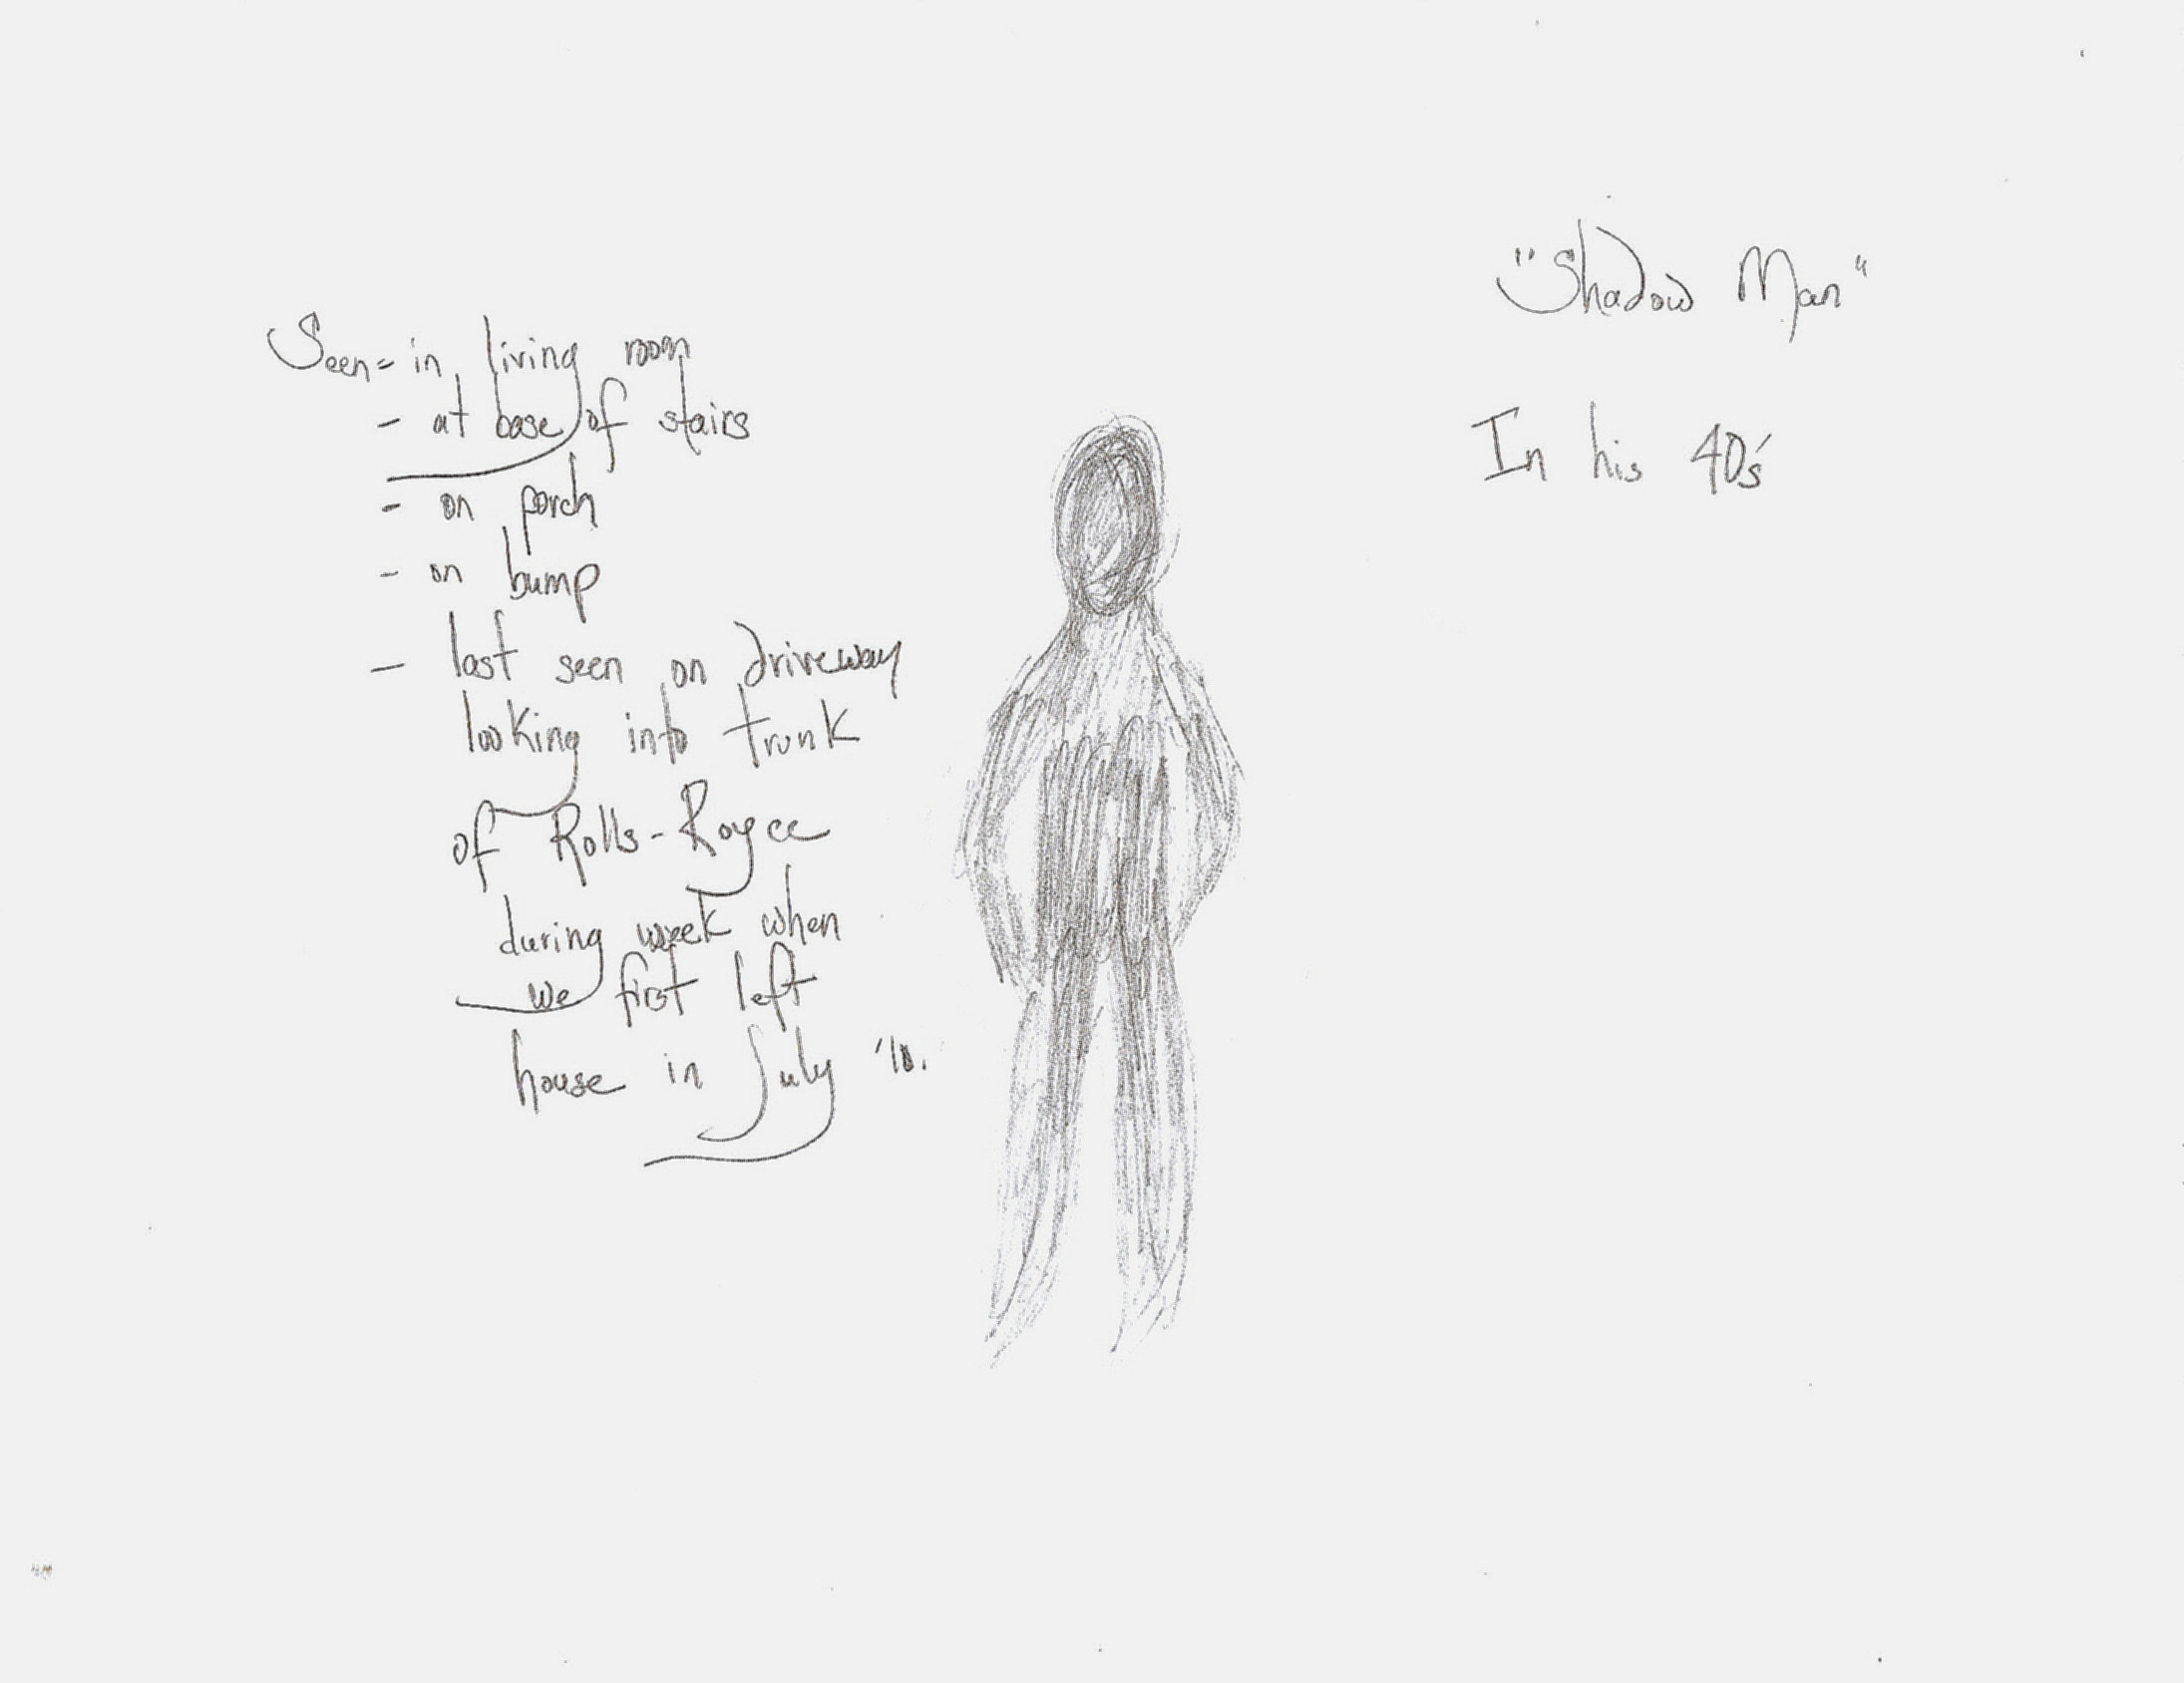 "Shadow Man"
In his 40's
Seen = in living room
- at base of stairs
- on porch
- on bump
- last seen on driveway
looking into trunk
of Rolls-Royce
during week when
we first left
house in July '10.